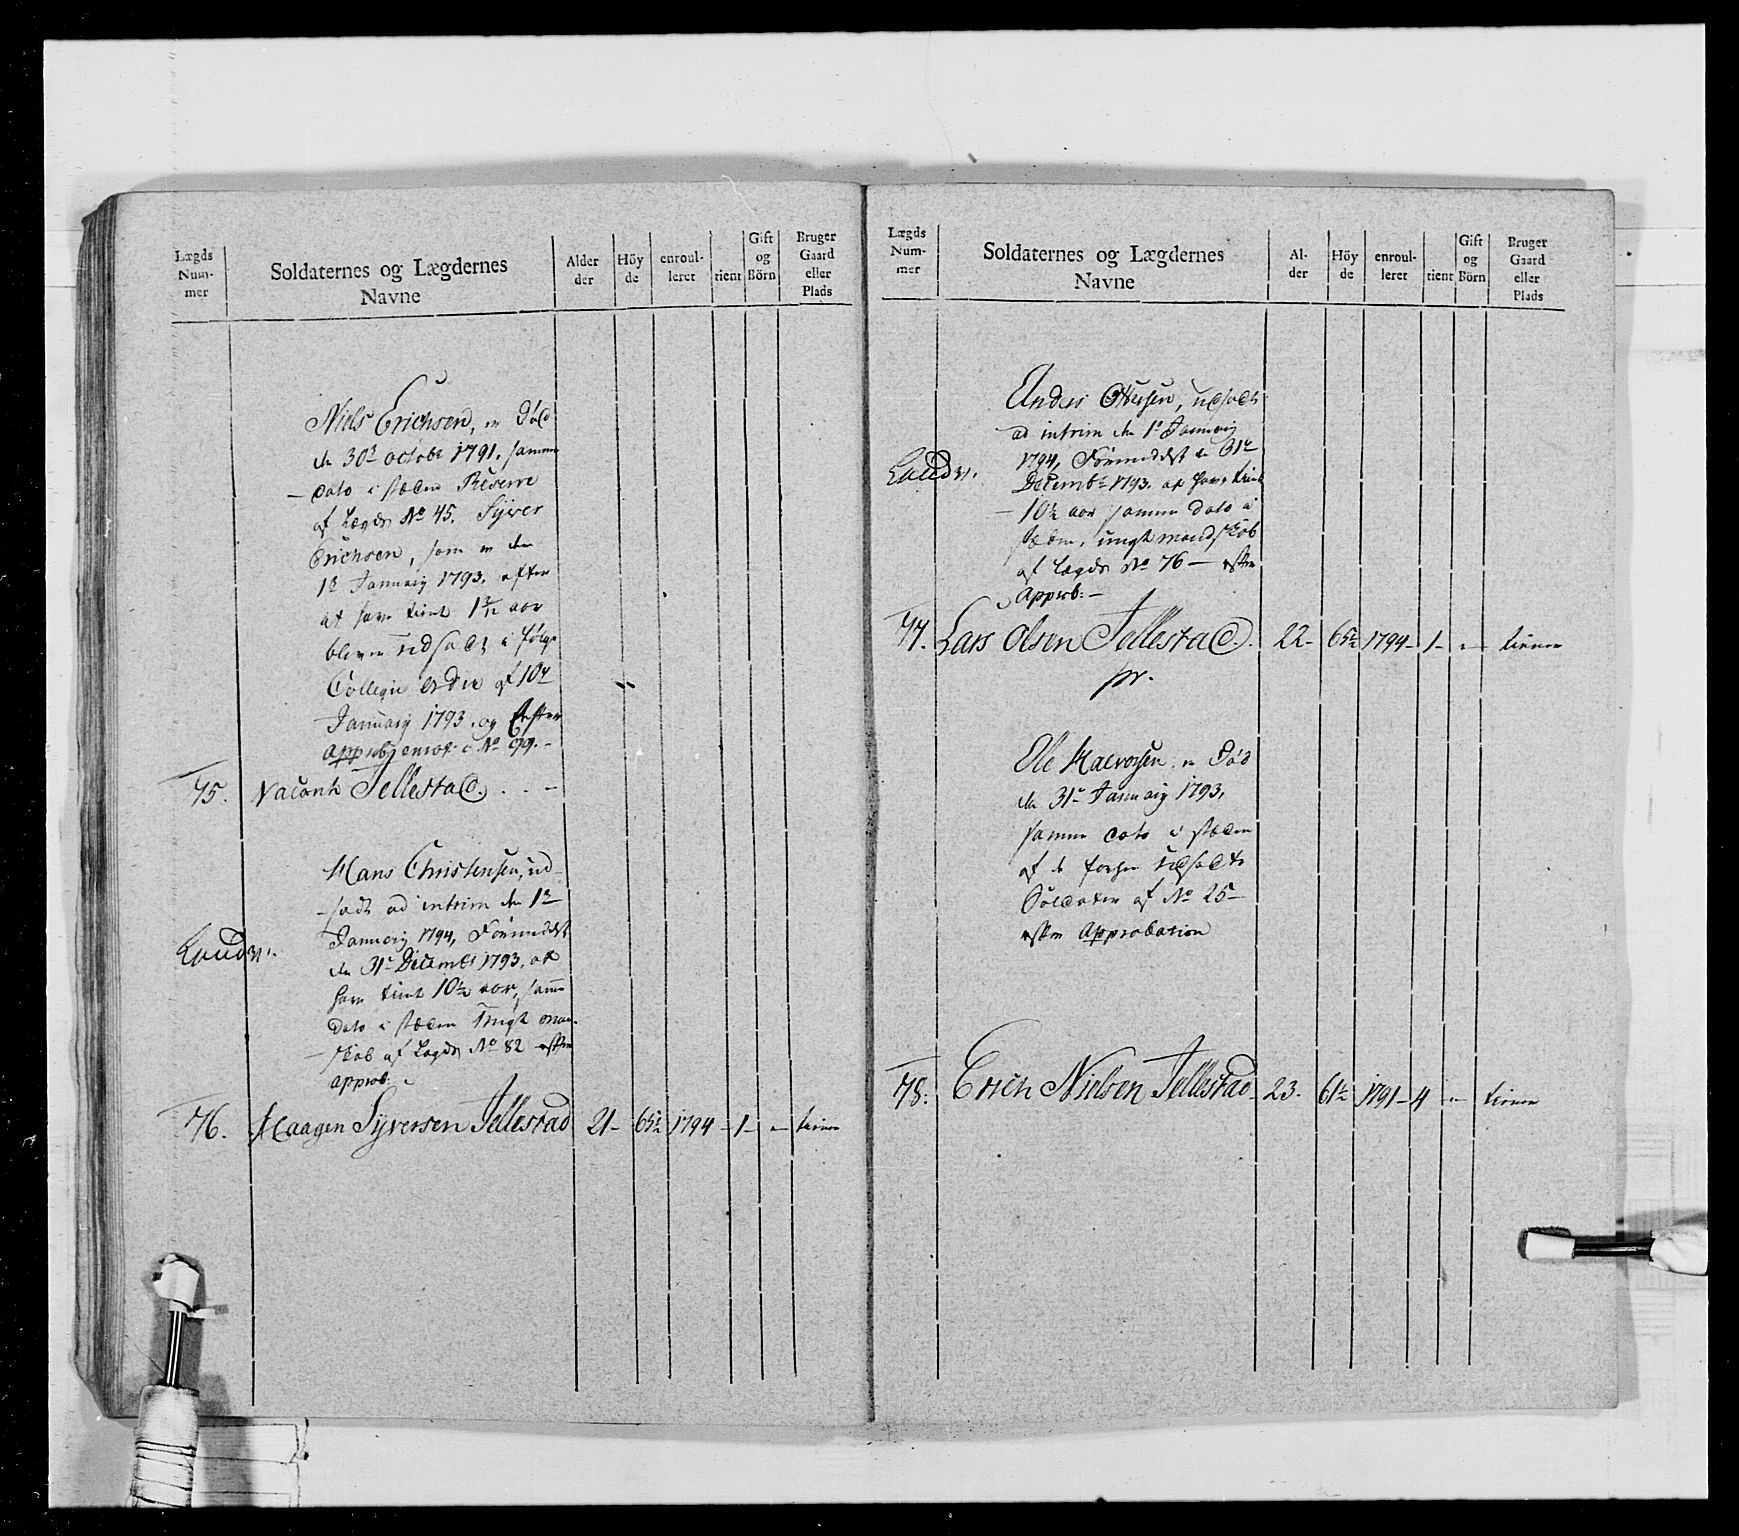 Lægds Num- mer
Soldaternes og Lægdernes Navne
Alder der
Höy de
enroul- leret
tient
Gift og Börn
Bruger Gaard eller Plads
Niels Erichsen, er Död
den 30t octobr 1791. samme
dato i stæden Reserve
af Lægds No 45. Syver
Erichsen, som er den
1t Januarij 1793. efter
at have tient 1 aar
bleven udsadt i fölge
Collegii Ordre af 10de
Januarij 1793. og Efter
No 99.
75. Vacant Tellestad. . . —
Hans Christensen, ud-
sadt ad intrim den 1t
Januarij 1794, Formedelst
Landv.
den 31t Decembr 1793. at
have tient 10½ aar, samme
dato i stæden Ungt man-
skab af Lægds No 82 efter
approb:
76. Haagen Syversen Tellestad 21— 65½ 1794 —1— — tiener
Lægds Num- mer
Soldaternes og Lægdernes Navne
Al- der
Höy de
enroul- leret
tient
Gift og Börn
Bruger Gaard eller Plads
Anders Ottersen, udsadt
ad intrim den 1t Januarij
1794, Formedelst den 31te
Landv.
Decembr 1793. at have tient
10½ aar samme dato i
stæden, ungt mandskab
af Lægds No 76— efter
Approb:—
77. Lars Olsen Tellestad. 22— 65½ 1794—1— — tiener
pr.
Ole Halvorsen er Död
den 31t Januarij 1793,
samme dato i stæden
af de forhen udsadte
Soldater af No 25—
efter Approbation
78. Erich Nielsen Tellestad 23. 61½ 1791—4 — tiener